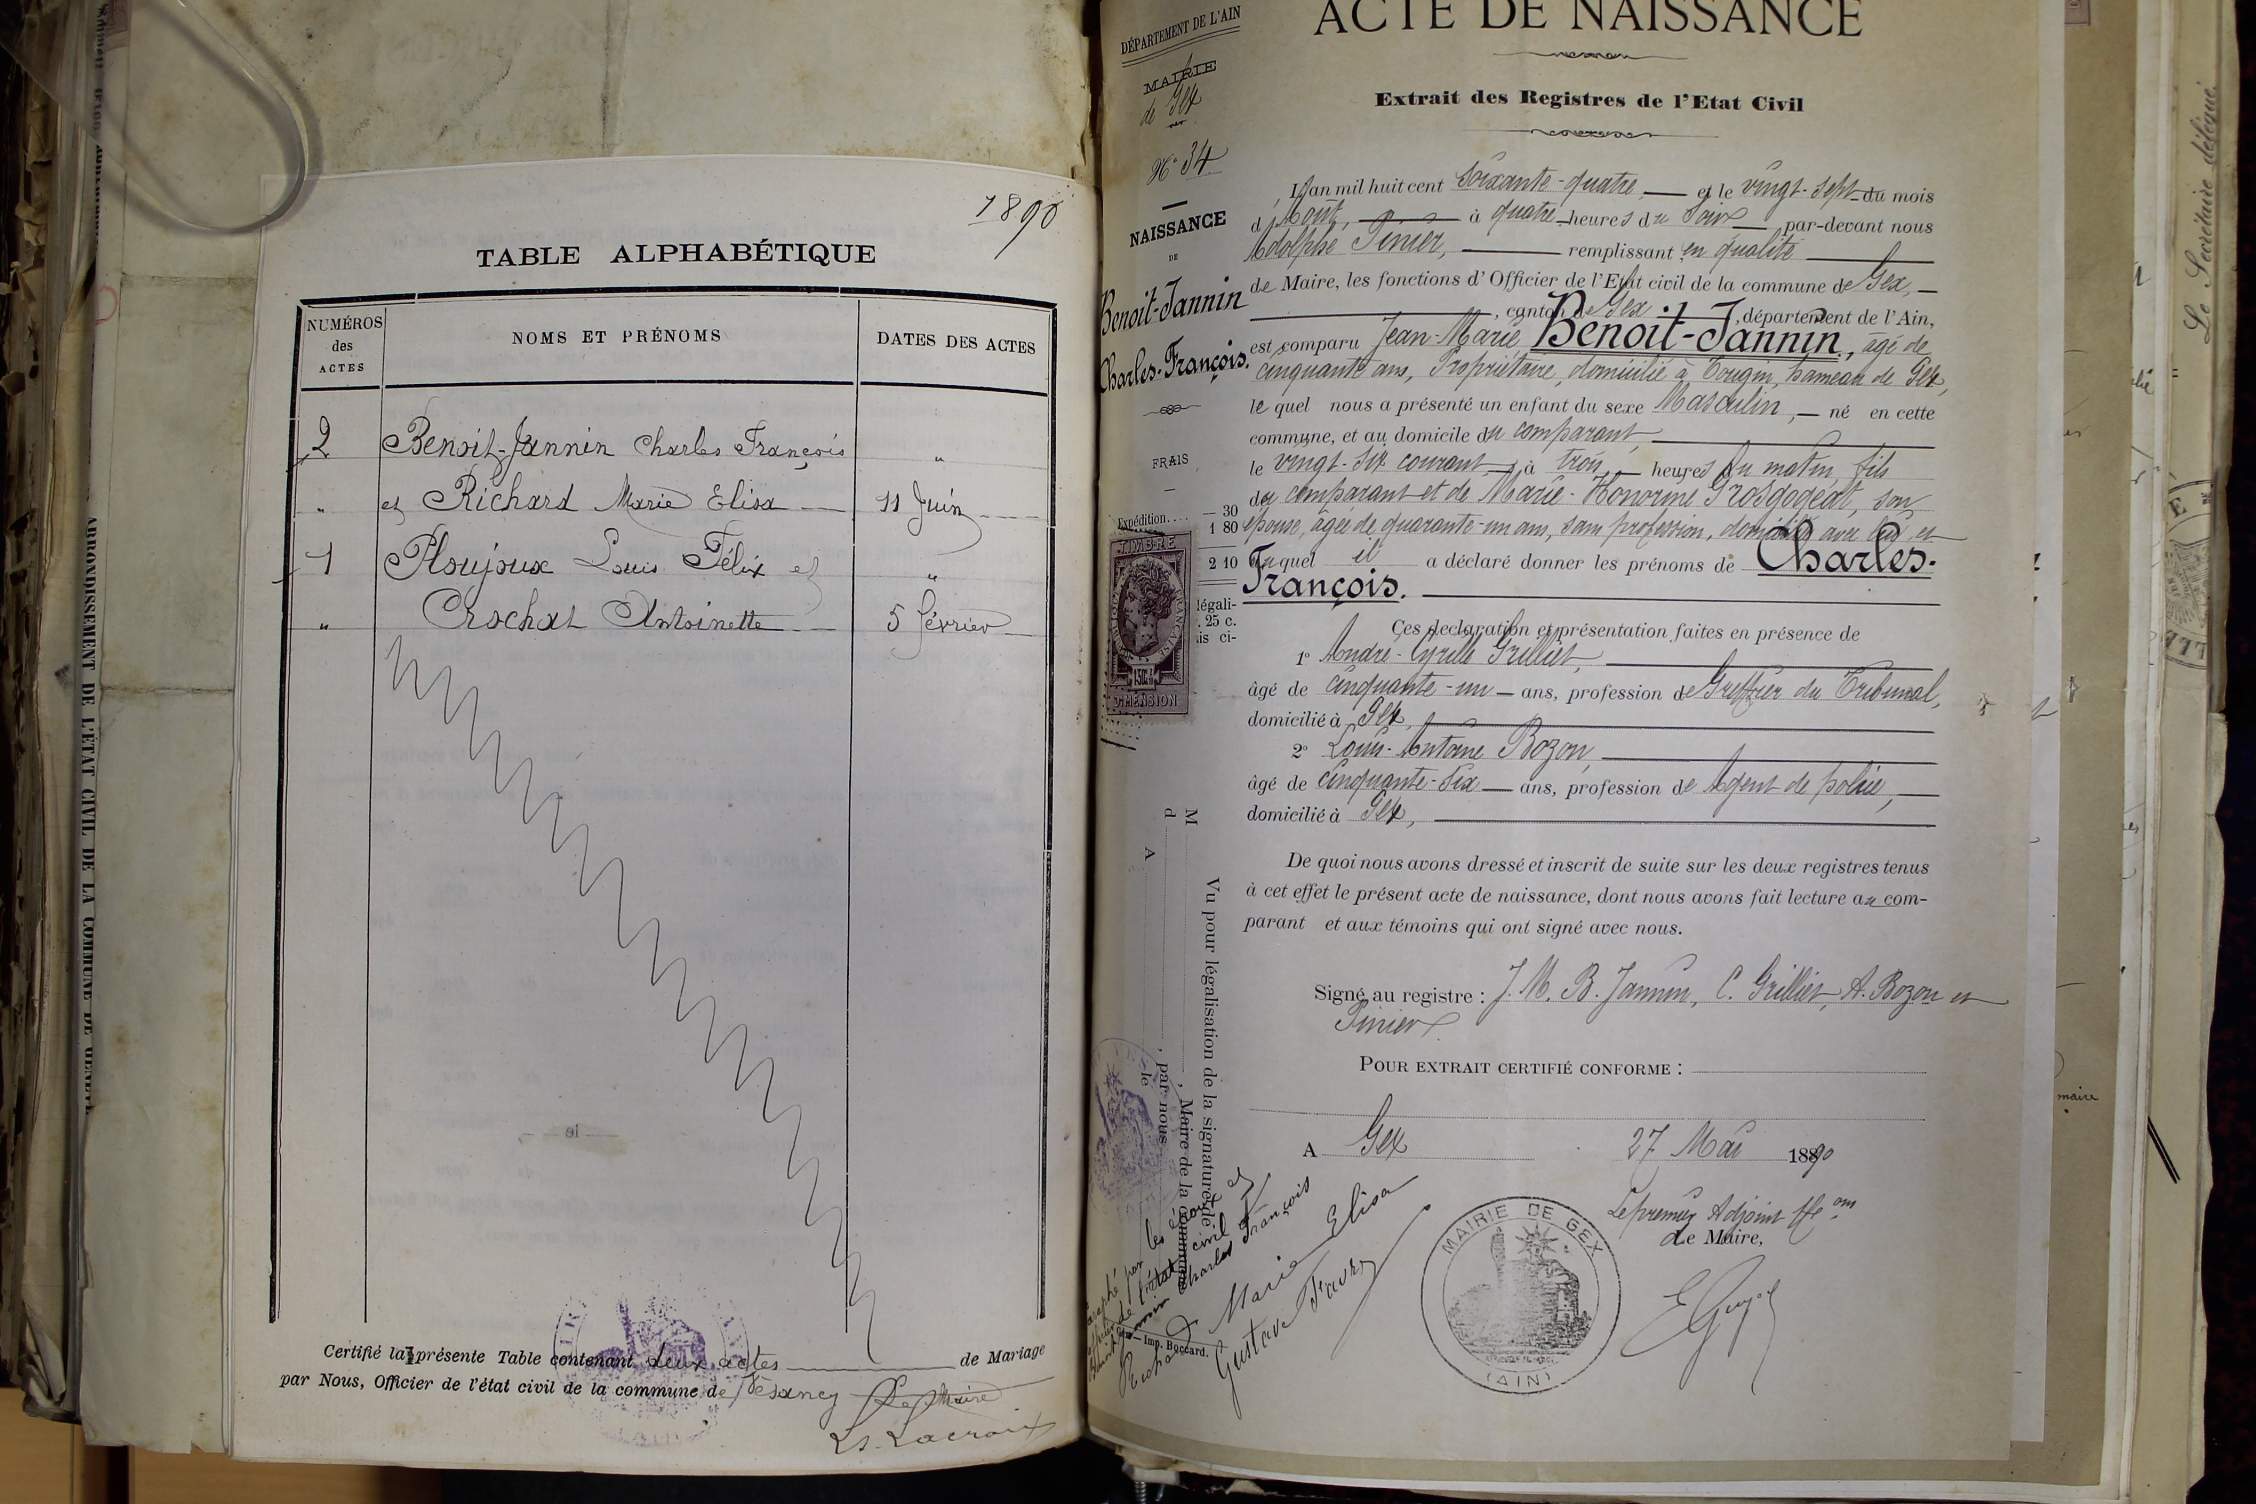 1890
TABLE ALPHABÉTIQUE
NUMÉROS
des
ACTES
NOMS ET PRÉNOMS
DATES DES ACTES
2 Benoit-Jannin Charles François "
" et Richard Marie Elisa 11 Juin
1 Ploujoux Louis Félix et "
" Crochat Antoinette 5 février
Certifié la présente Table contenant deux actes de Mariage
par Nous, Officier de l'état civil de la commune de Vésancy Le Maire
Ls. Lacroix
ARRONDISSEMENT DE L'ÉTAT CIVIL DE LA COMMUNE DE
DÉPARTEMENT DE L'AIN
MAIRIE
de Gex
N° 34
NAISSANCE
DE
Benoit-Jannin
Charles-François.
FRAIS
Expédition.... — 30
1 80
2 10
légali-
. 25 c.
is ci-
TIMBRE
DIMENSION
ACTE DE NAISSANCE
Extrait des Registres de l'Etat Civil
L'an mil huit cent soixante-quatre, et le vingt-sept du mois
d'Août, à quatre heures du soir par-devant nous
Adolphe Pinier, remplissant en qualité
de Maire, les fonctions d'Officier de l'Etat civil de la commune de Gex,
, canton de Gex, département de l'Ain,
est comparu Jean-Marie Benoit-Jannin, agé de
cinquante ans, Propriétaire, domicilié à Tougin, hameau de Gex,
lequel nous a présenté un enfant du sexe Masculin, né en cette
commune, et au domicile du comparant,
le vingt-six courant, à trois heures du matin, fils
du comparant et de Marie-Honorine Grosgogeat, son
épouse, âgée de quarante-un ans, sans profession, domiciliée avec lui, et
auquel il a déclaré donner les prénoms de Charles-
François.
Ces declaration et présentation faites en présence de
1° André-Cyrille Grilliet,
âgé de cinquante-un ans, profession de Greffier du Tribunal,
domicilié à Gex,
2° Louis-Antoine Bozon,
âgé de cinquante-six ans, profession de Agent de police,
domicilié à Gex,
De quoi nous avons dressé et inscrit de suite sur les deux registres tenus
à cet effet le présent acte de naissance, dont nous avons fait lecture au com-
parant et aux témoins qui ont signé avec nous.
Signé au registre : J. M. B. Jannin, C. Grilliet, A. Bozon et
Pinier
POUR EXTRAIT CERTIFIÉ CONFORME :
A Gex 27 Mai 1890
Le premier Adjoint ff.ons
de Maire,
MAIRIE DE GEX
(AIN)
Vu pour légalisation de la signature de
M , Maire de la commune
d , par nous
A le
paraphé par les époux et
l'officier de l'état civil
Benoit Jannin Charles François
Richard Marie Elisa
Gustave Favre
— Imp. Beccard.
Le Secrétaire délégué.
maire